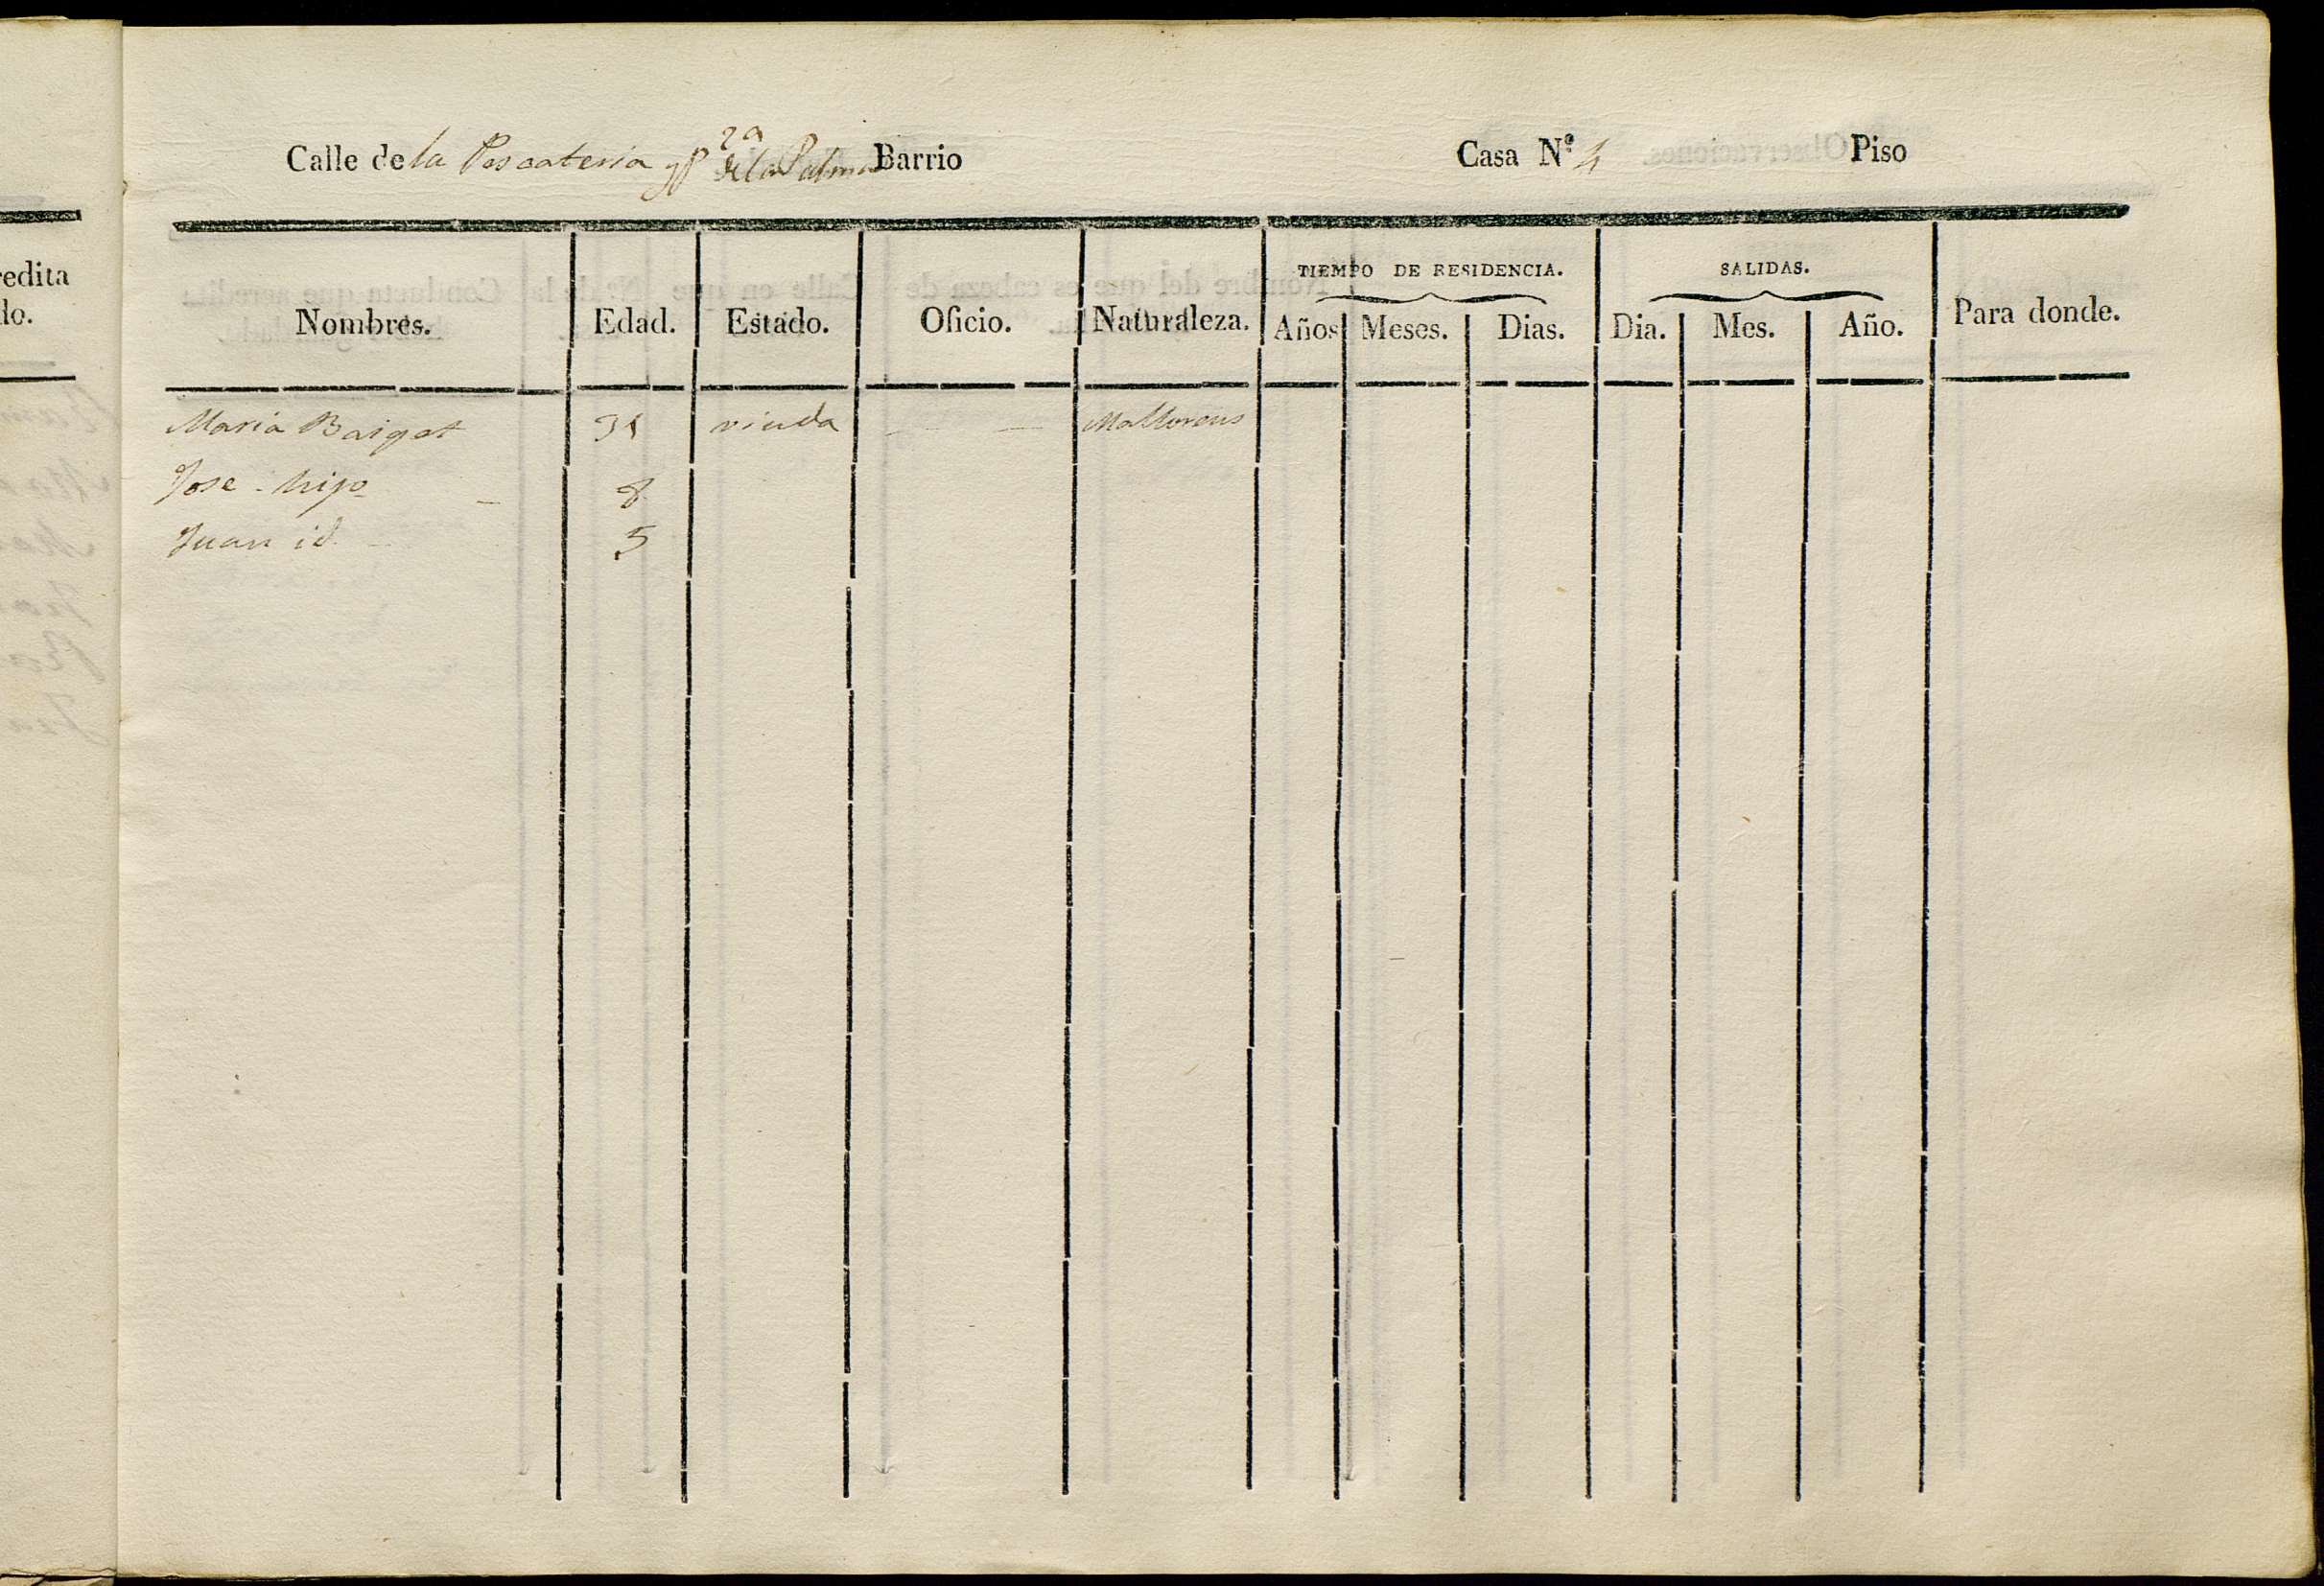 redita
do.
Calle de la Pescateria y Pza de la Palma Barrio Casa N.º 4 Piso
TIEMPO DE RESIDENCIA. SALIDAS.
Nombres. Edad. Estado. Oficio. Naturaleza. Años Meses. Dias. Dia. Mes. Año. Para donde.
Maria Baiget 31 viuda — —
Jose - hijo — 8
Juan id - 5